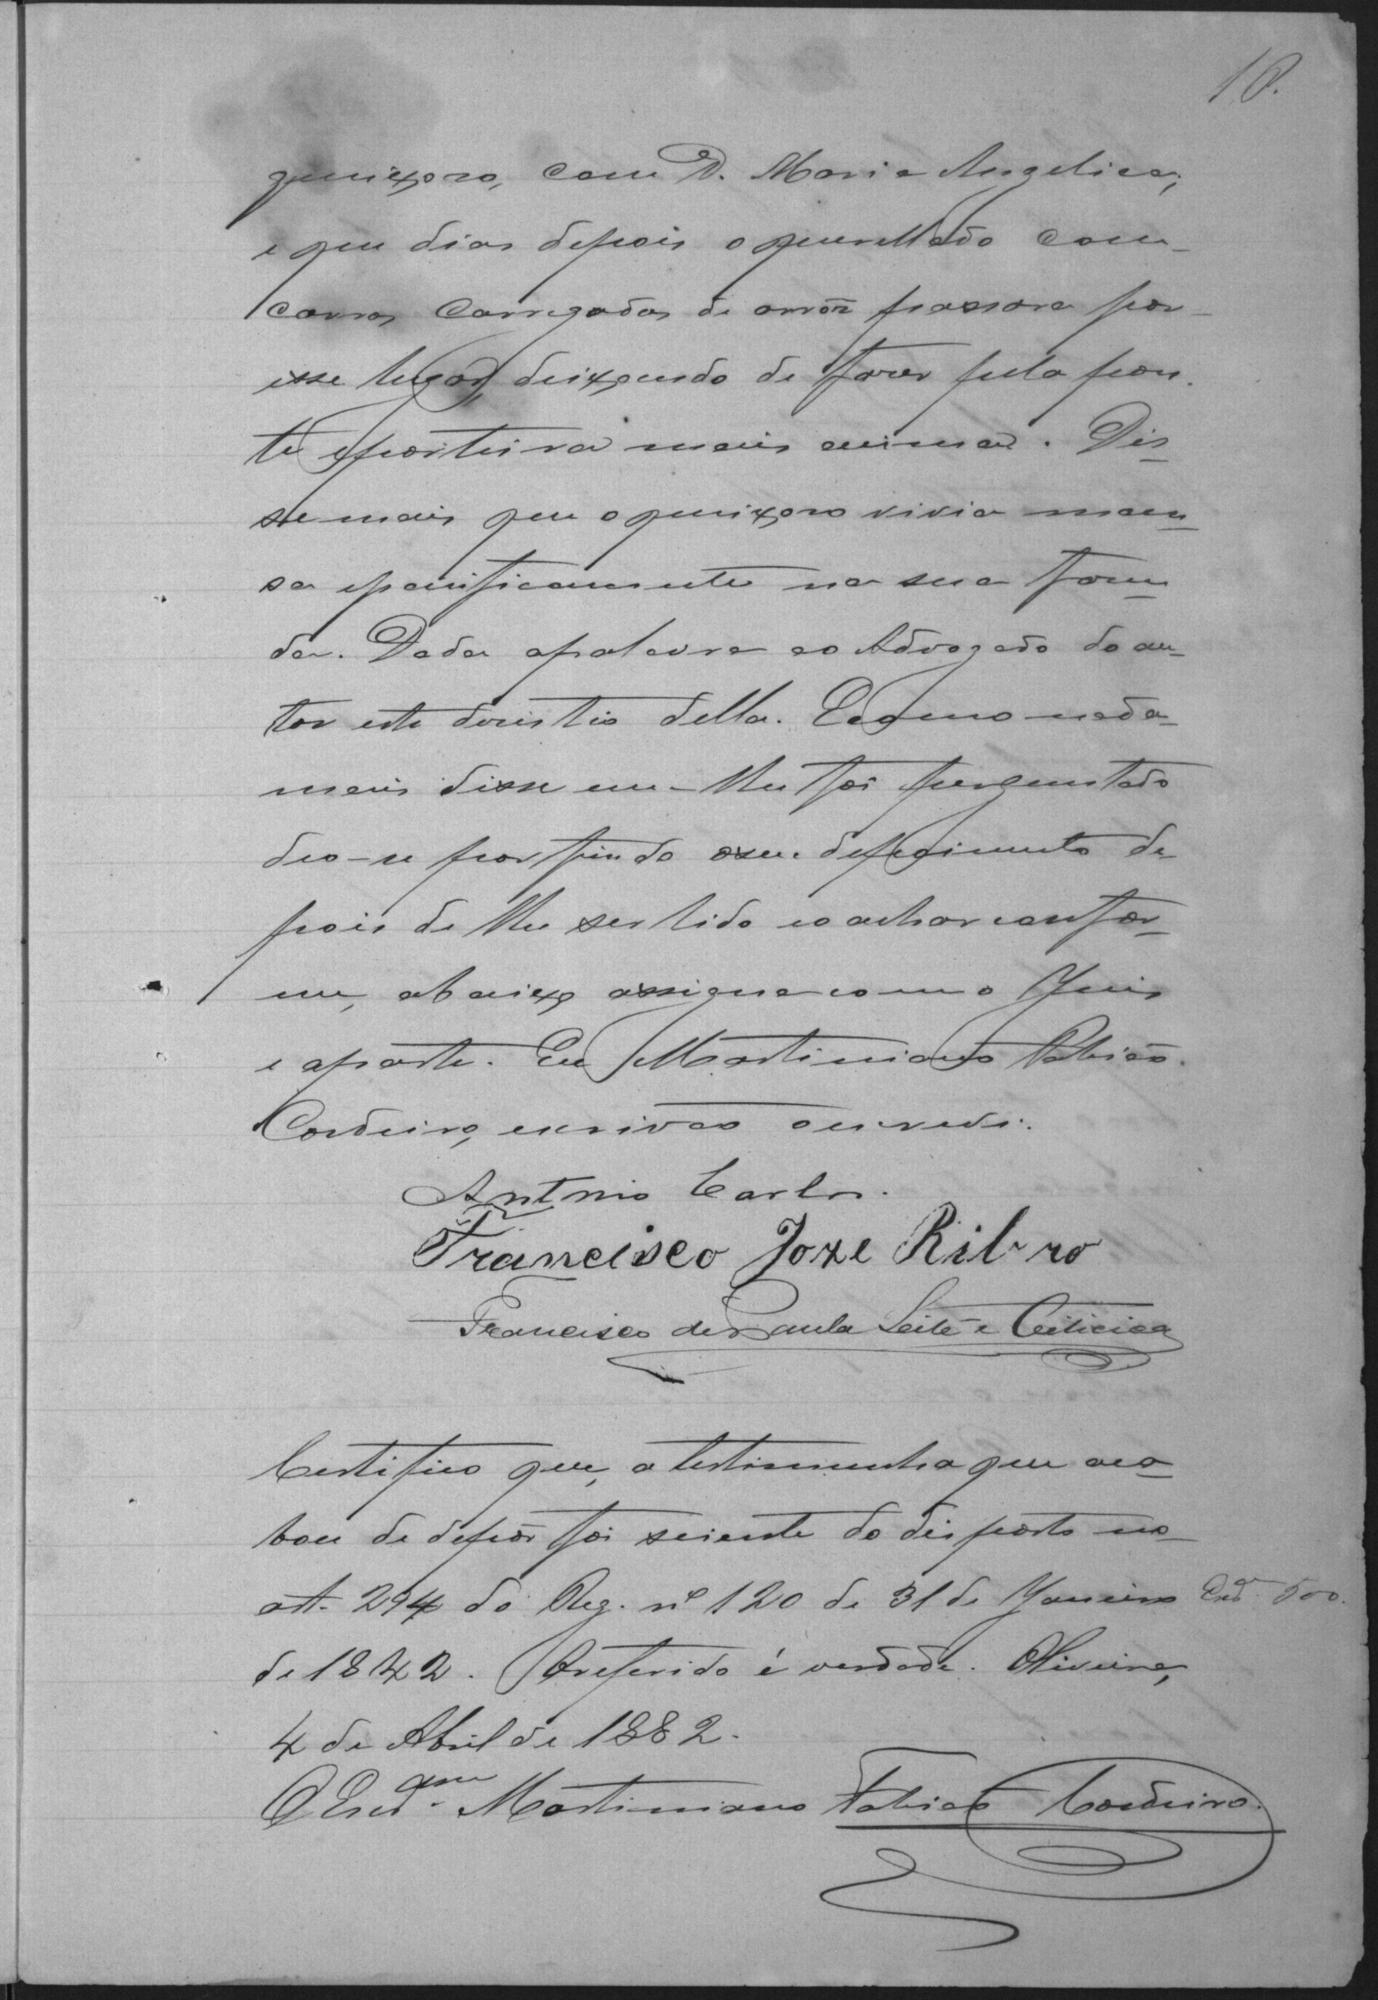 10.
queixoso, com D. Maria Angelica;
e que dias depois o querellado com
carros carregados de arrôz passara por
esse lugar, deixando de fazer pela pon-
te e porteira mais acima. Dis-
se mais que o queixoso vivia man-
sa e pacificamente na sua fazen-
da. Dada a palavra ao Advogado do au-
tor este desistio della. E como nada
mais disse nem lhe foi perguntado
deo-se por findo o seu depoimento de
pois de lhe ser lido e o achar confor-
me, abaixo assigna com o Juis
e a parte. Eu Martiniano Fabião
Cordeiro, escrivão o escrevi.
Antonio Carlos.
Francisco Joze Ribro
Francisco de Paula Leite e Oiticica
Certifico que, a testimunha que aca-
bou de depôr foi sciente do disposto no
art. 294 do Reg. nº 120 de 31 de Janeiro 500.
de 1842. O referido é verdade. Oliveira,
4 de Abril de 1882.
O Escram Martiniano Fabião Cordeiro.